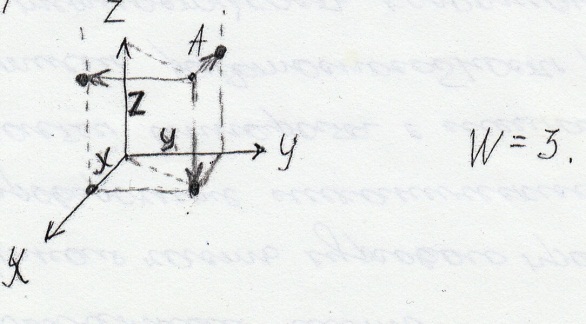 Z
A
Z
y
W = 3.
y
x
X